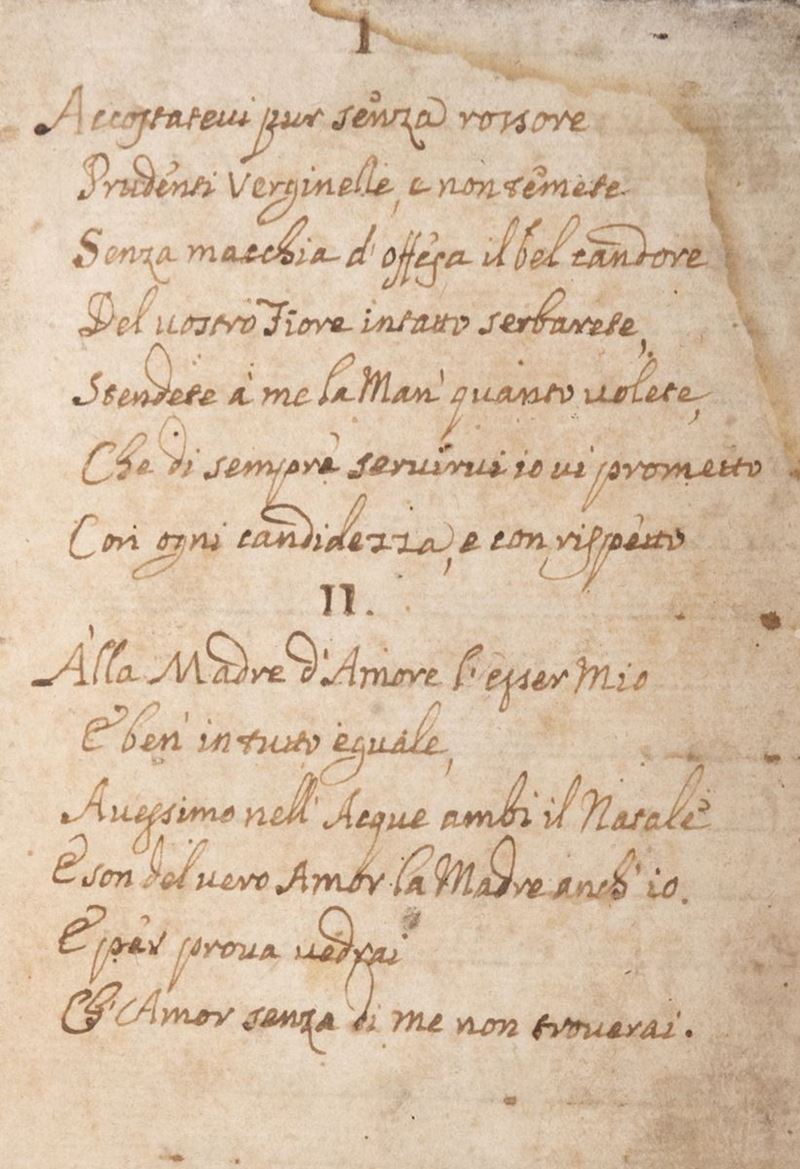 I
Accostatevi pur senza rossore
Prudenti Verginelle, e non temete
Senza macchia d'offesa il bel candore
Del vostro Fiore intatto serbarete,
Stendete à me la Man' quanto volete,
Che di sempre servirvi io vi prometto
Con ogni candidezza, e con rispetto
II.
Alla Madre d'Amore l'esser Mio
È ben' in tutto eguale,
Avessimo nell'Acque ambi il Natale
E son del vero Amor la Madre anch'io.
E per prova vedrai
Ch'Amor senza di me non troverai.